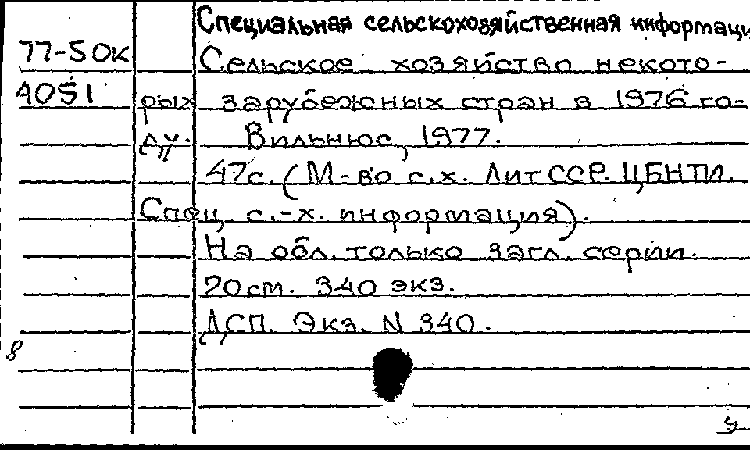 Специальная сельскохозяйственная информаци
77-50к Сельское хозяйство некото-
4051 рых зарубежных стран в 1976 го-
ду. Вильнюс, 1977.
47с. (М-во с.х. Лит ССР. ЦБНТИ.
Спец. с.-х. информация).
На обл. только загл. серии.
20см. 340 экз.
ДСП. Экз. N 340.
8